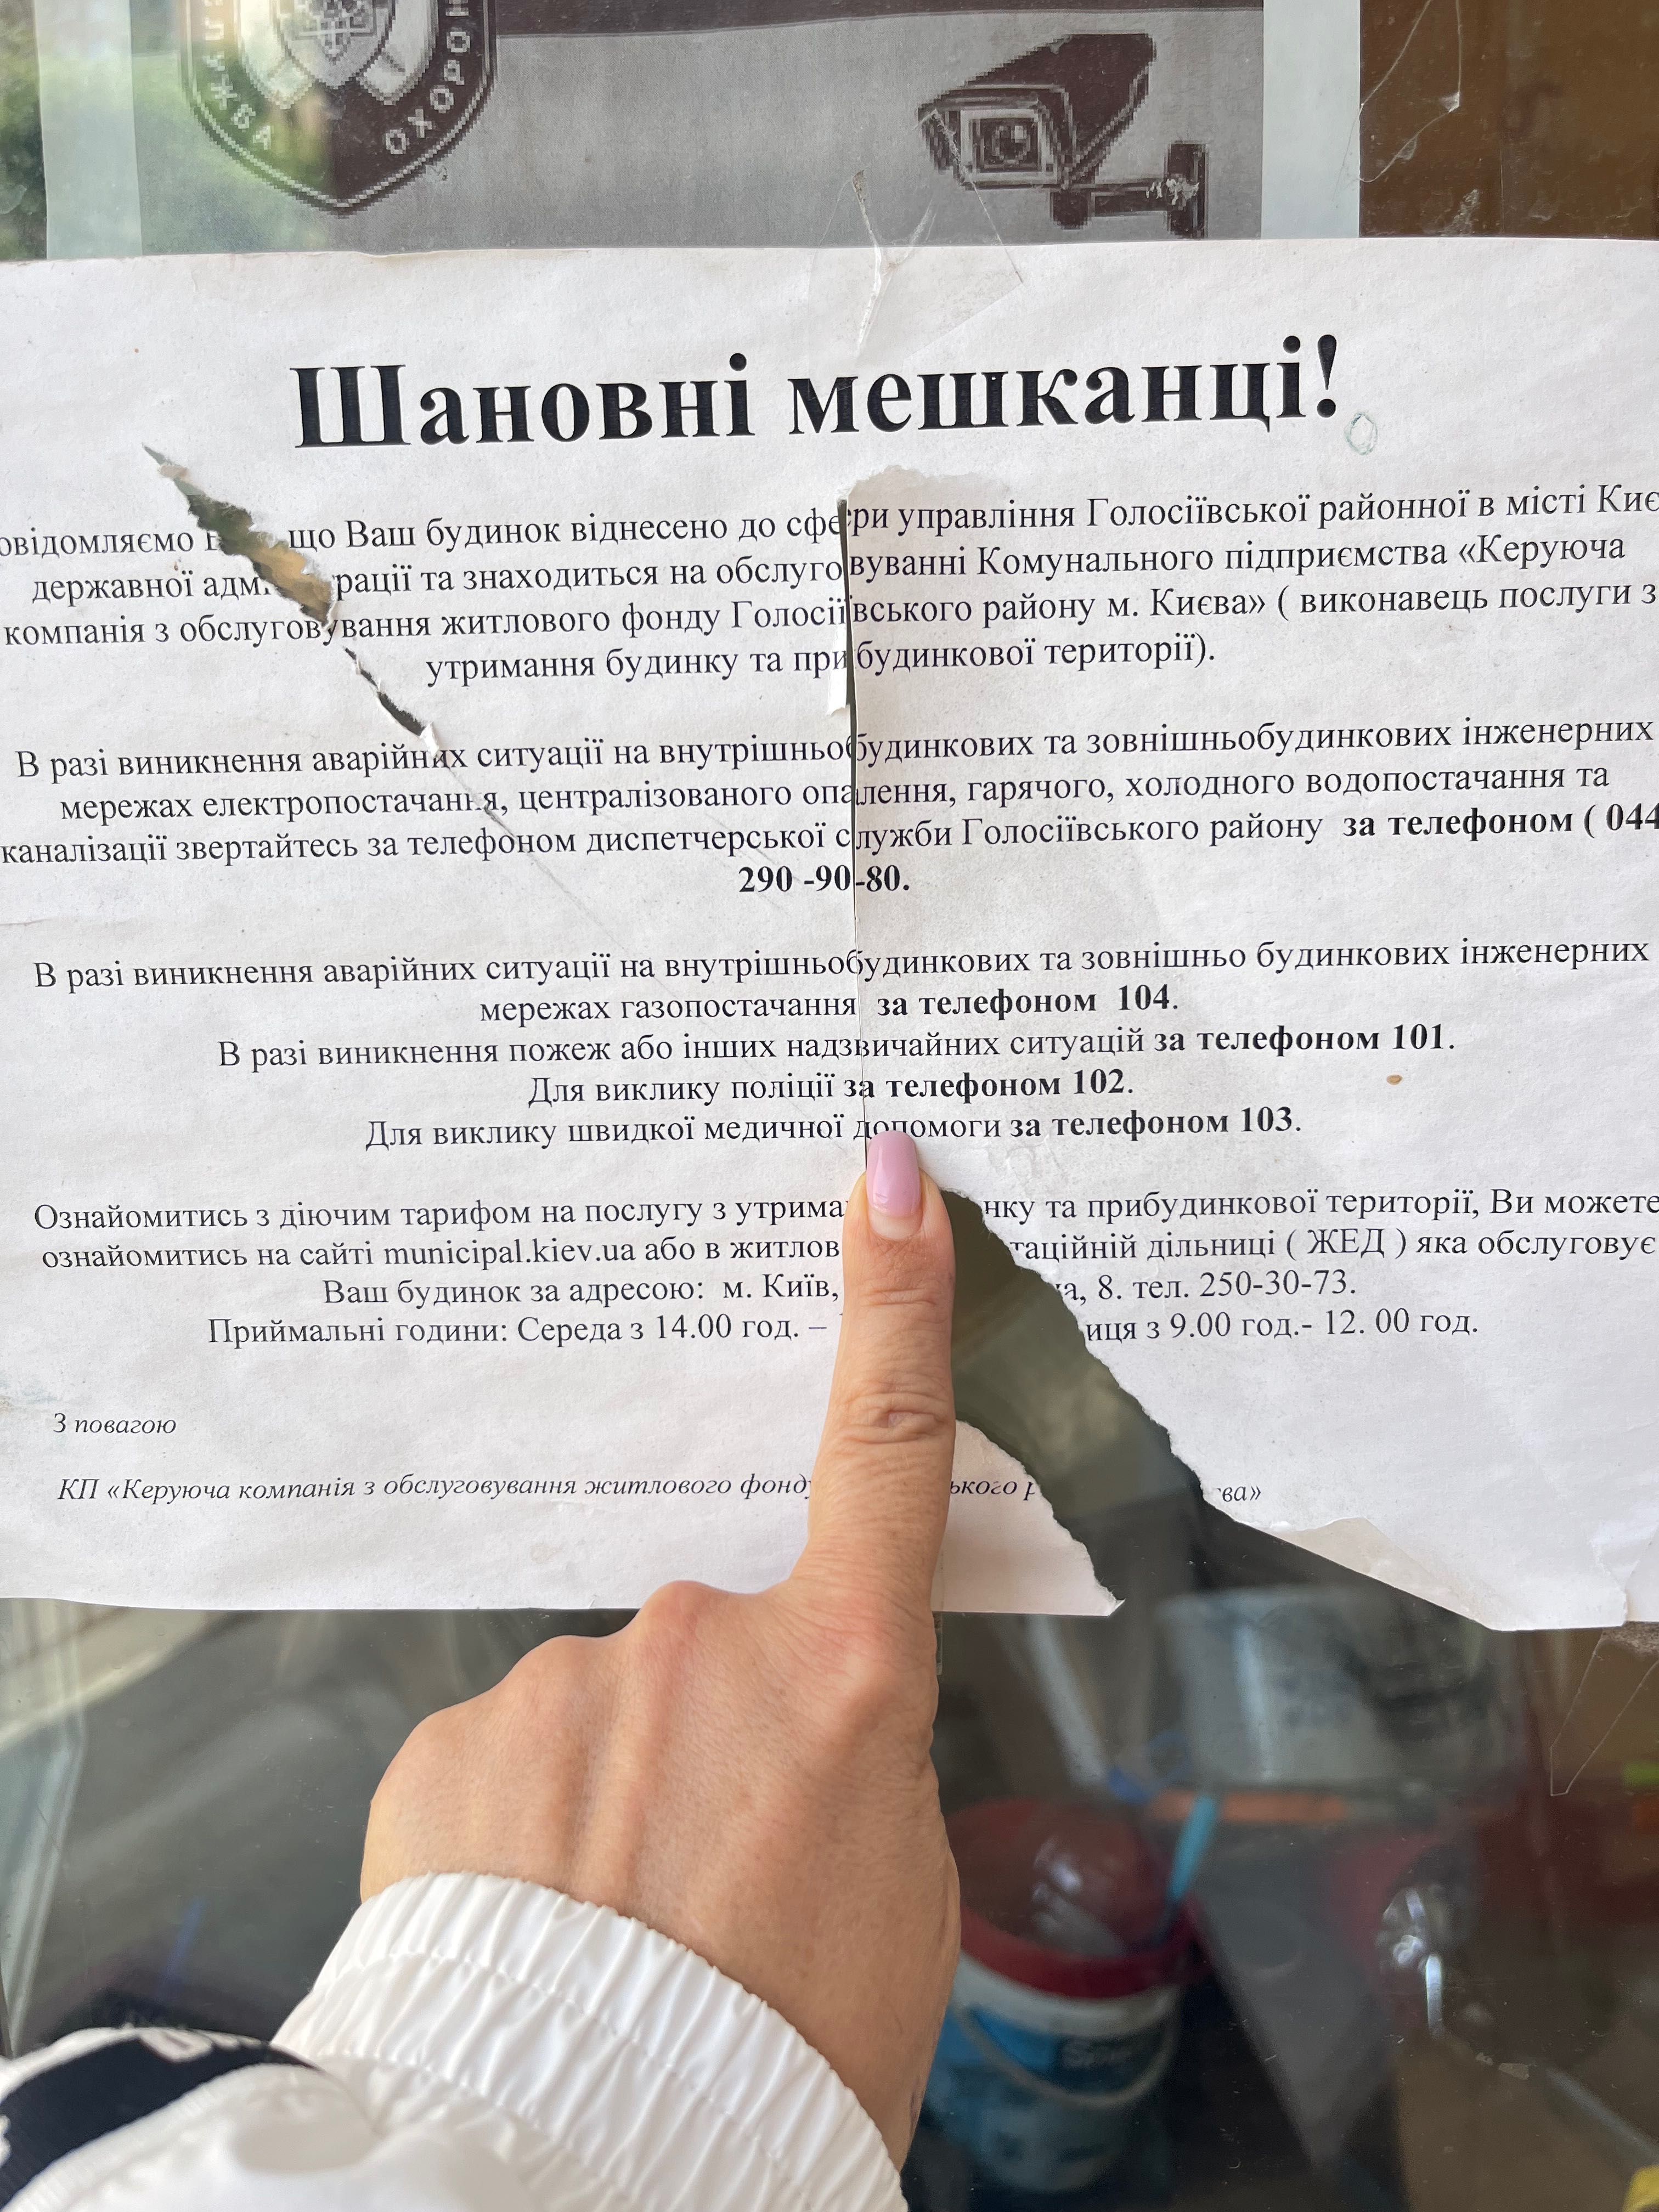 Шановні мешканці!
що Ваш будинок віднесено до сфери управління Голосіївської районної в місті
державної та знаходиться на обслуговуванні Комунального підприємства «Керуюча
компанія з обслуговування житлового фонду Голосіївського району м. Києва» ( виконавець послуги з
утримання будинку та прибудинкової території).
В разі виникнення аварійних ситуації на внутрішньобудинкових та зовнішньобудинкових інженерних
мережах електропостачання, централізованого опалення, гарячого, холодного водопостачання та
каналізації звертайтесь за телефоном диспетчерської служби Голосіївського району за телефоном ( 044
290 -90-80.
В разі виникнення аварійних ситуації на внутрішньобудинкових та зовнішньо будинкових інженерних
мережах газопостачання за телефоном 104.
В разі виникнення пожеж або інших надзвичайних ситуацій за телефоном 101.
Для виклику поліції за телефоном 102.
Для виклику швидкої медичної допомоги за телефоном 103.
Ознайомитись з діючим тарифом на послугу з та прибудинкової території, Ви можете
ознайомитись на сайті municipal.kiev.ua або в дільниці ( ЖЕД ) яка обслуговує
Ваш будинок за адресою: м. Київ, 8. тел. 250-30-73.
Приймальні години: Середа з 14.00 год. – з 9.00 год.- 12. 00 год.
З повагою
КП «Керуюча компанія з обслуговування житлового